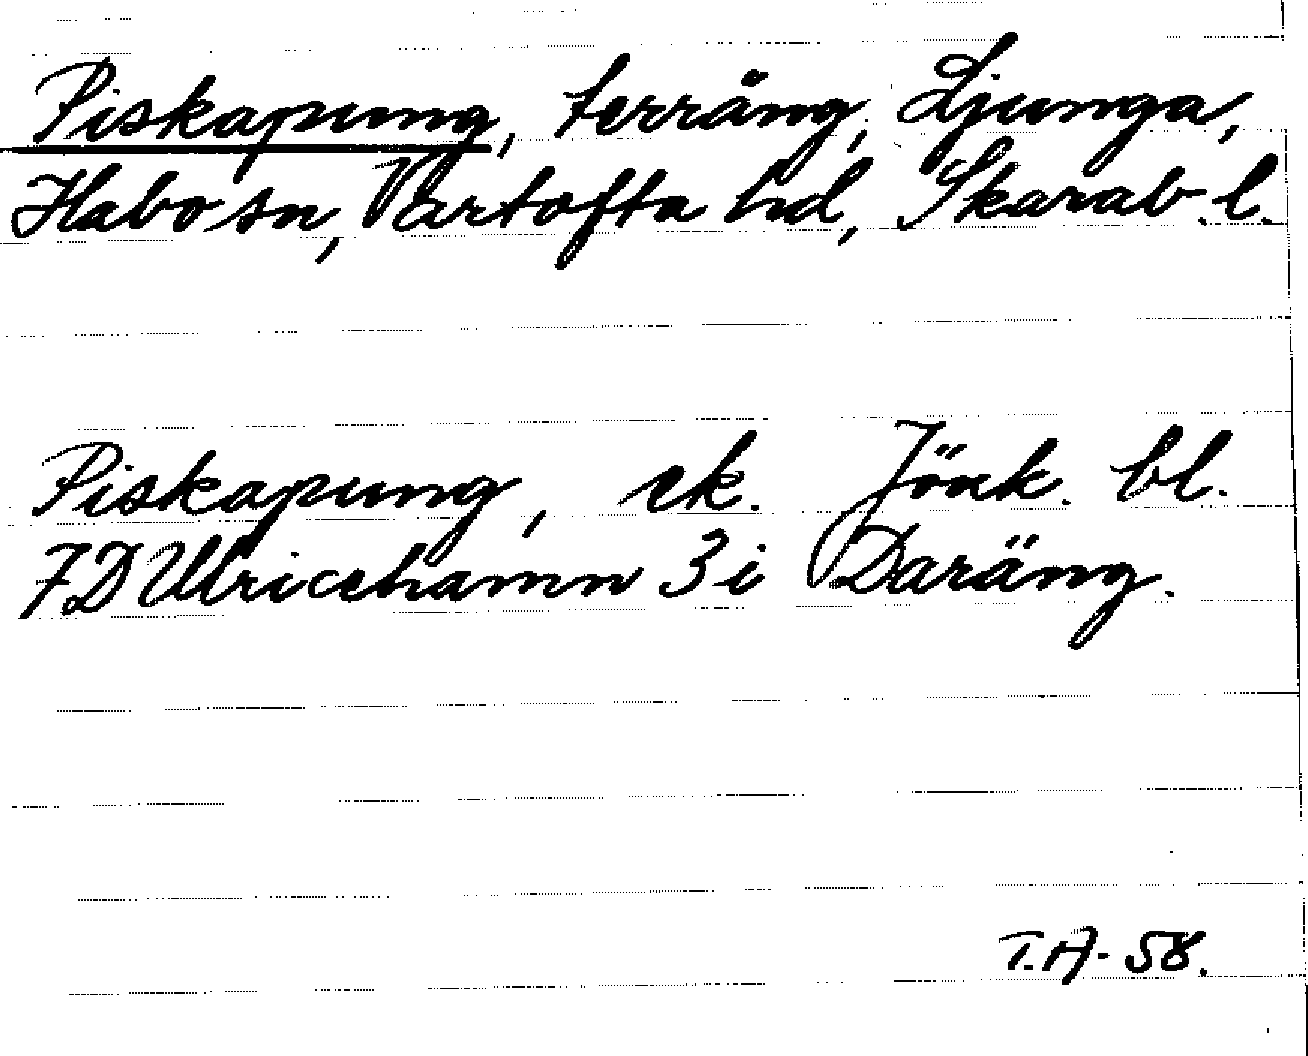 Piskapung, terräng, Ljunga,
Habo sn, Vartofta hd, Skarab. l.
Piskapung, ek. Jönk. bl.
7D Ulricehamn 3i Daräng.
T.A- 58.